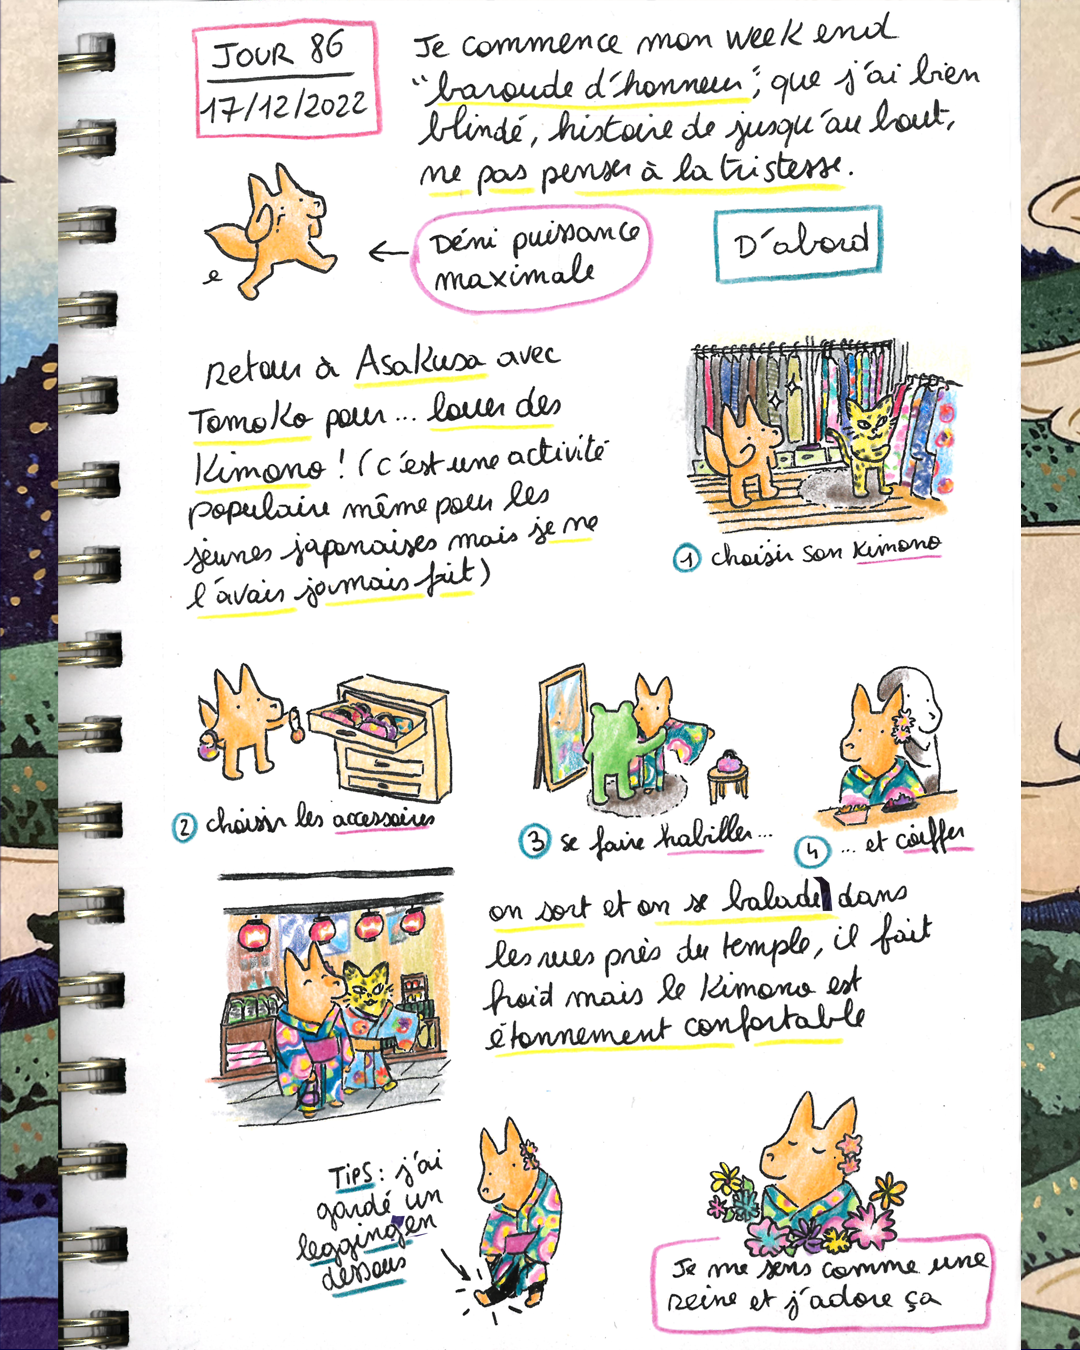 JOUR 86
17/12/2022
Je commence mon week end
"baroude d'honneur", que j'ai bien
blindé, histoire de jusqu'au bout,
ne pas penser à la tristesse.
Déni puissance
maximale
D'abord
Retour à Asakusa avec
Tomoko pour... louer des
Kimono ! (c'est une activité
populaire même pour les
jeunes japonaises mais je ne
l'avais jamais fait)
1 choisir son kimono
2 choisir les accessoires
3 se faire habiller...
4 ... et coiffer
on sort et on se balade dans
les rues près du temple, il fait
froid mais le Kimono est
étonnement confortable
TIPS : j'ai
gardé un
legging en
dessous
Je me sens comme une
reine et j'adore ça